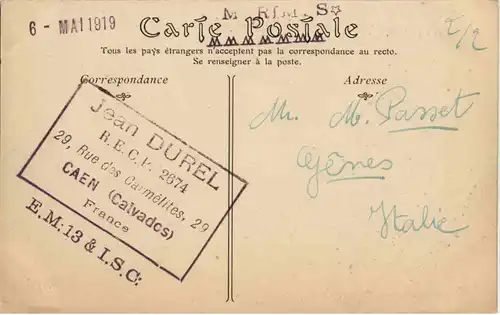 6 - MAI 1919
Carte Postale
Tous les pays étrangers n'acceptent pas la correspondance au recto.
Se renseigner à la poste.
Correspondance
Adresse
Jean DUREL
R.E.C.I. 2674
29, Rue des Carmélites, 29
CAEN (Calvados)
France
E.M: 13 & I.S.C:
Mr. M. Passet
Gênes
Italie